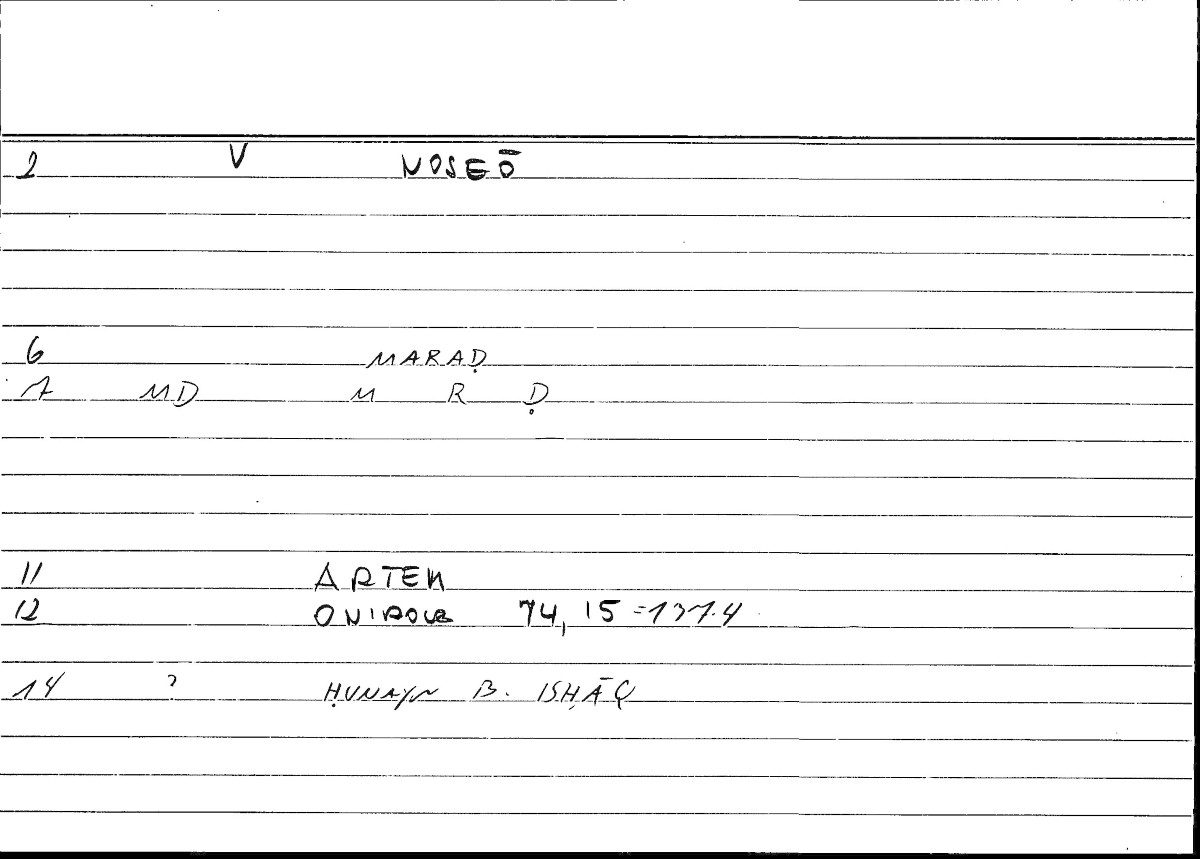 2 V NOSEŌ
6 MARAḌ
7 MD M R Ḍ
11 ARTEM
12 ONIROCR 74, 15 = 131.4
14 ? ḤUNAYN B. ISḤĀQ